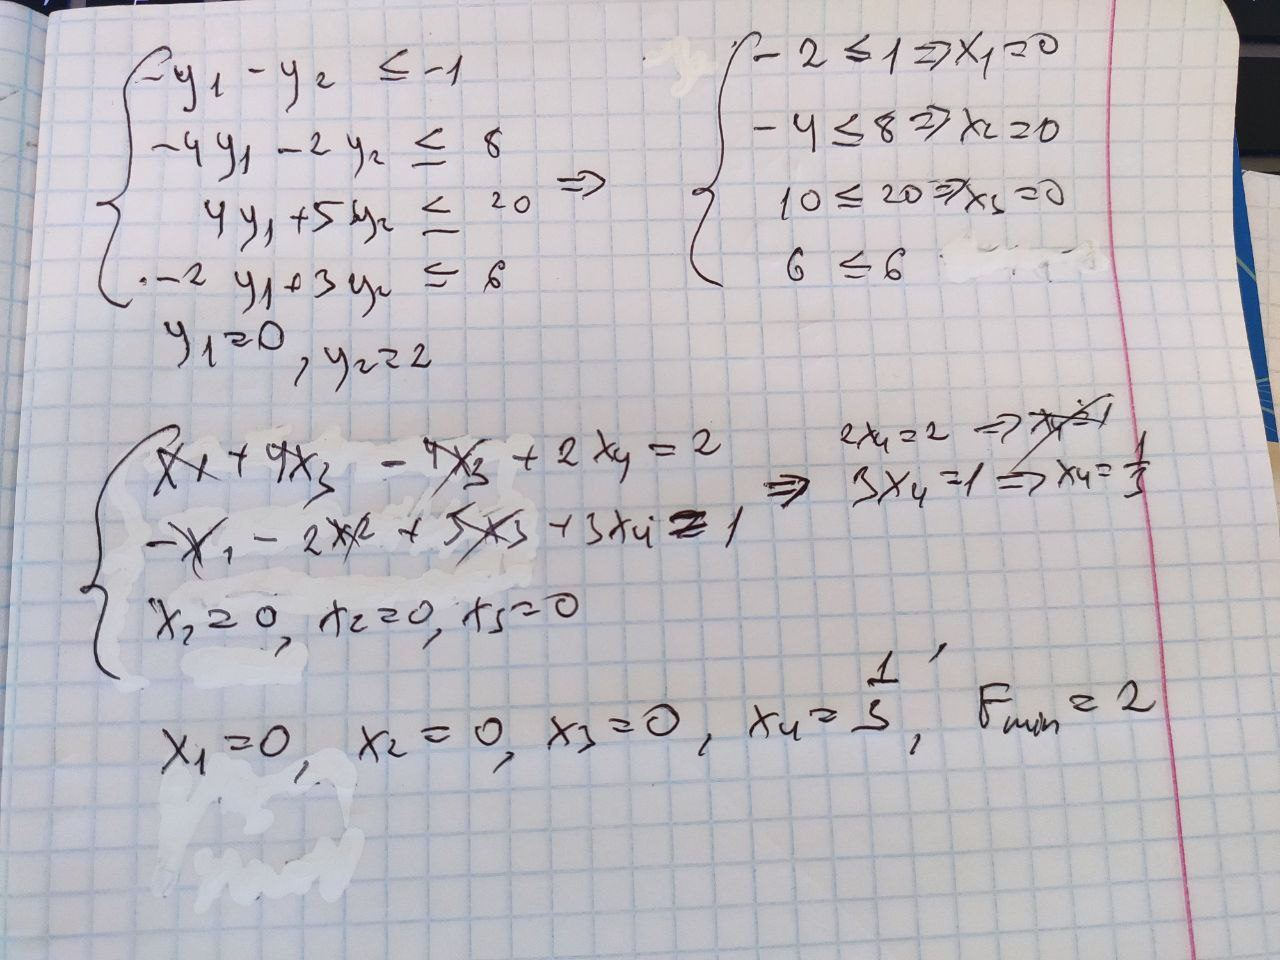 -y₁ - y₂ ≤ -1
-4y₁ - 2y₂ ≤ 8
4y₁ + 5y₂ ≤ 20 ⇒
-2y₁ + 3y₂ ≤ 6
y₁ = 0, y₂ = 2
-2 ≤ 1 ⇒ x₁ = 0
-4 ≤ 8 ⇒ x₂ = 0
10 ≤ 20 ⇒ x₃ = 0
6 ≤ 6
+ 4x₃ - 4x₃ + 2x₄ = 2
-x₁ - 2x₂ + 5x₃ + 3x₄ = 1 ⇒
x₁ = 0, x₂ = 0, x₃ = 0
2x₄ = 2 ⇒ x₄ = 1
3x₄ = 1 ⇒ x₄ = 1/3
x₁ = 0, x₂ = 0, x₃ = 0, x₄ = 1/3, Fmin = 2